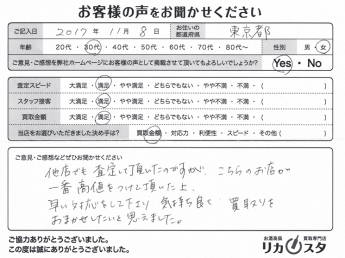 お客様の声をお聞かせください
ご記入日 2017年 11月 8日 お住いの都道府県 東京都
年齢 20代・30代・40代・50代・60代・70代・80代〜 性別 男・女
ご意見・ご感想を弊社ホームページにお客様の声として掲載させて頂いてもよろしいでしょうか? Yes・No
査定スピード 大満足・満足・やや満足・どちらでもない・やや不満・不満・( )
スタッフ接客 大満足・満足・やや満足・どちらでもない・やや不満・不満・( )
買取金額 大満足・満足・やや満足・どちらでもない・やや不満・不満・( )
当店をお選びいただきました決め手は? 買取金額・対応力・利便性・スピード・その他( )
ご意見・ご感想などぜひお聞かせください
他店でも査定して頂いたのですが、こちらのお店が
一番高値をつけて頂いた上、
早い対応をして下さり 気持ち良く 買取りを
おまかせしたいと思えました。
ご協力ありがとうございました。
この度は誠にありがとうございました。
お酒高価買取専門店
リカスタ